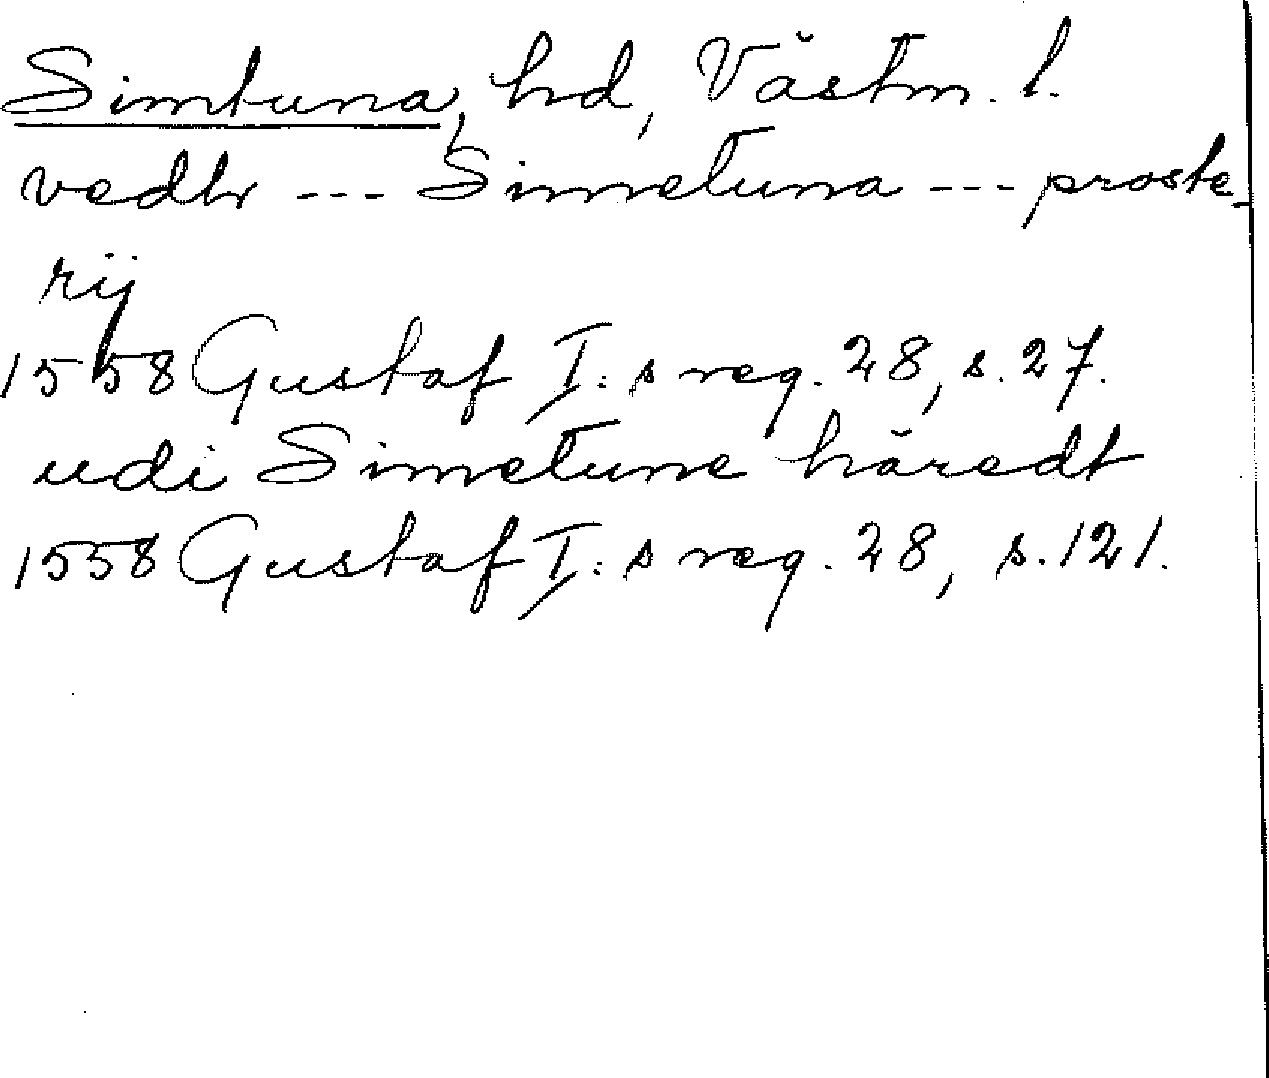 Simtuna, hd, Västm. l.
vedhr --- Simetuna --- proste-
rij
1558 Gustaf I:s reg. 28, s. 27.
udi Simetune häredt
1558 Gustaf I:s reg. 28, s. 121.